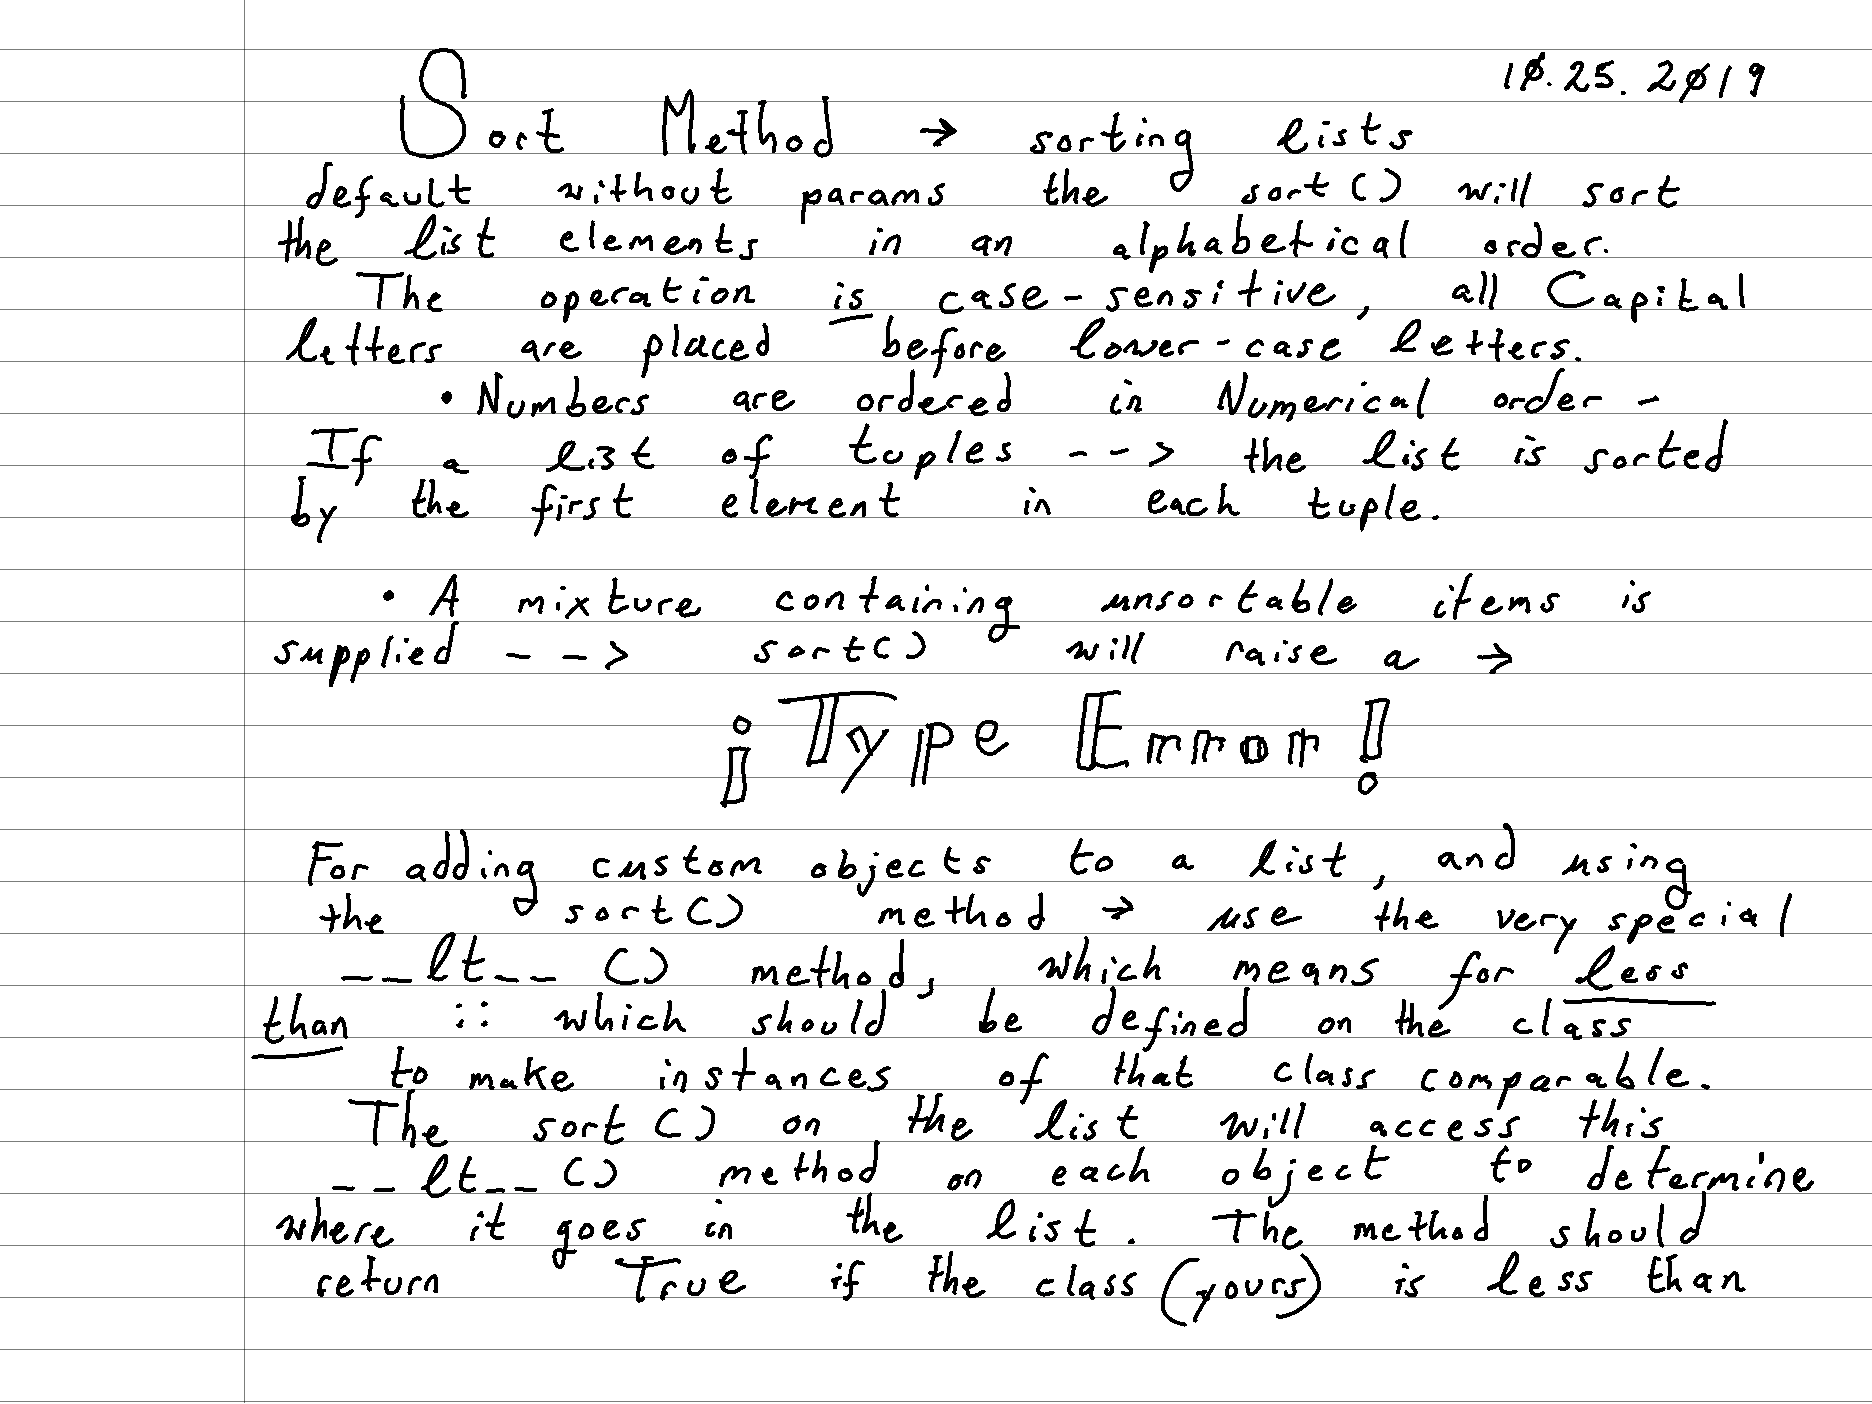 10.25.2019
Sort Method → sorting lists
default without params the sort() will sort
the list elements in an alphabetical order.
The operation is case-sensitive, all Capital
letters are placed before lower-case letters.
• Numbers are ordered in Numerical order -
If a list of tuples --> the list is sorted
by the first element in each tuple.
• A mixture containing unsortable items is
supplied --> sort() will raise a →
¡Type Error!
For adding custom objects to a list, and using
the sort() method → use the very special
__lt__() method, which means for less
than :: which should be defined on the class
to make instances of that class comparable.
The sort() on the list will access this
__lt__() method on each object to determine
where it goes in the list. The method should
return True if the class (yours) is less than